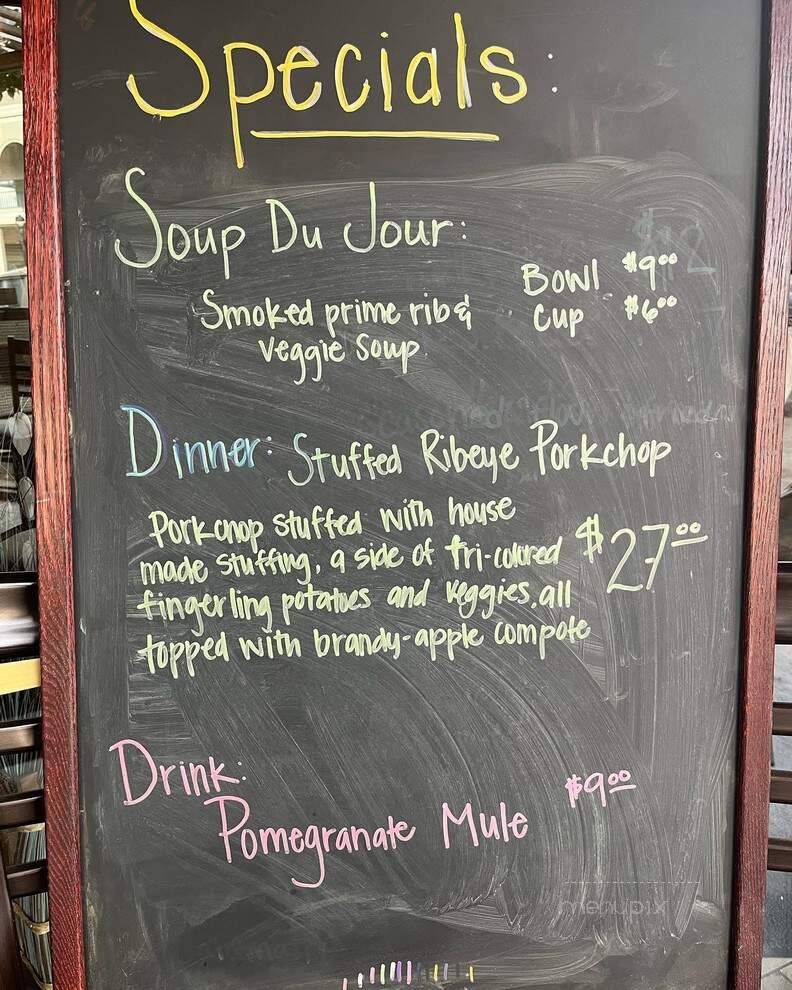 Specials:
Soup Du Jour:
Smoked prime rib &
Veggie Soup
Bowl $9.00
Cup $6.00
Dinner: Stuffed Ribeye Porkchop
Porkchop stuffed with house
made stuffing, a side of tri-colored
fingerling potatoes and veggies, all
topped with brandy-apple compote
$27.00
Drink:
Pomegranate Mule
$9.00
menupix